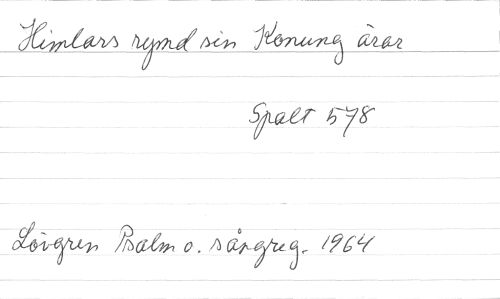 Himlars rymd sin Konung ärar
Spalt 578
Lövgren Psalm o. sångreg. 1964